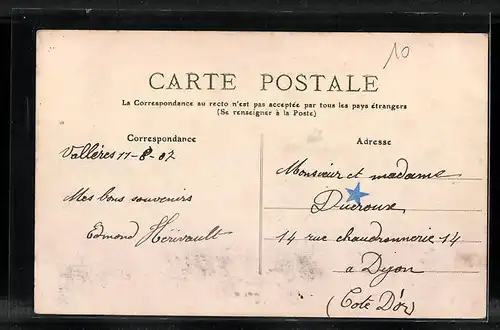 10
CARTE POSTALE
La Correspondance au recto n'est pas acceptée par tous les pays étrangers
(Se renseigner à la Poste)
Correspondance
Adresse
Vallères 11-8-07
Mes bons souvenirs
Edmond Hérivault
Monsieur et madame
Ducroux
14 rue chaudronnerie 14
a Dijon
(Cote D'or)